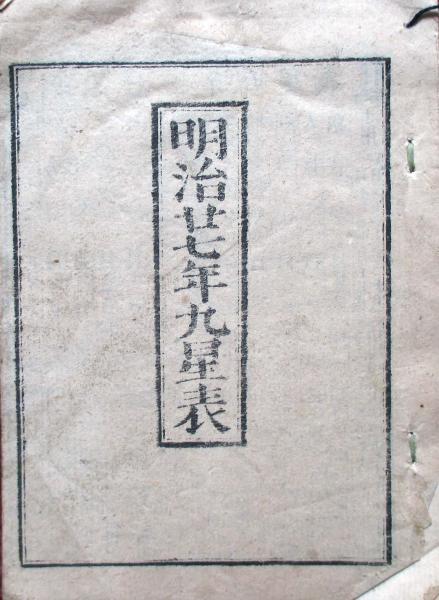 明治廿七年九星表